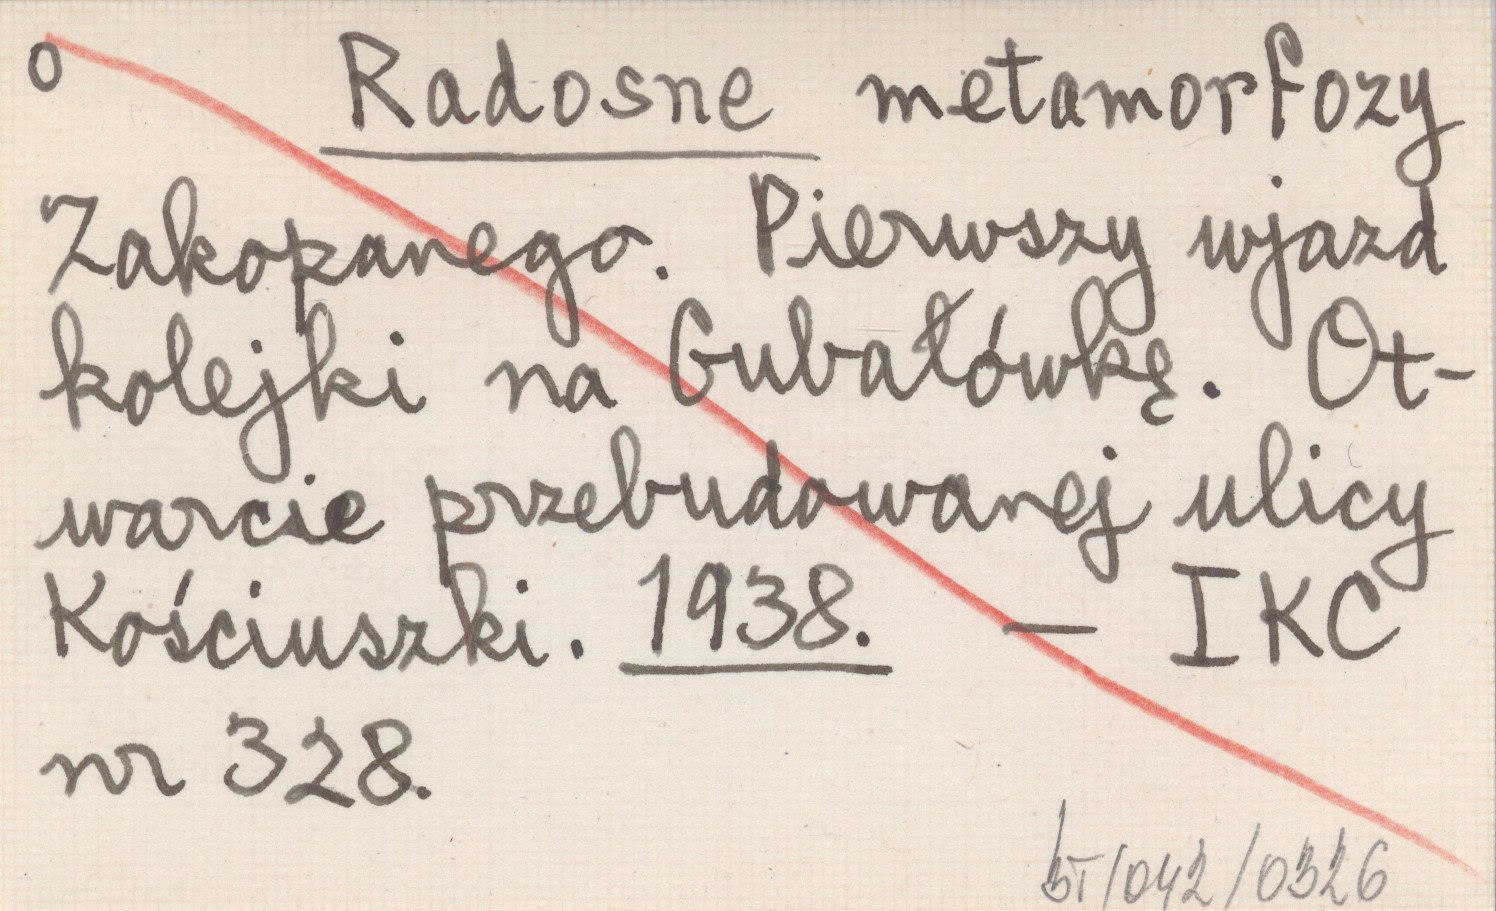 o Radosne metamorfozy
Zakopanego. Pierwszy wjazd
kolejki na Gubałówkę. Ot-
warcie przebudowanej ulicy
Kościuszki. 1938. — IKC
nr 328.
/042/0326